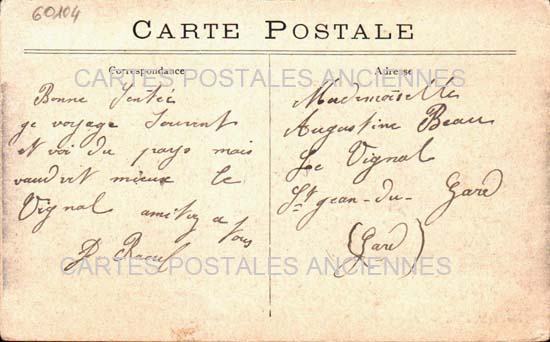 60104
CARTE POSTALE
Correspondance
Bonne Santée
je voyage Souvent
et voi du pays mais
vaudrit mieux le
Vignal amitiez a tous
P Raoul
Adresse
Mademoiselle
Augustine Beau
Le Vignal
St jean-du-Gard
(Gard)
CARTES POSTALES ANCIENNES
CARTES POSTALES ANCIENNES